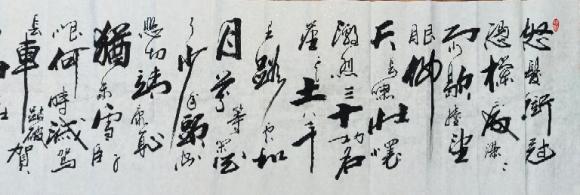 怒髮衝冠
憑欄處瀟〻
雨歇擡望
眼仰
天長嘯壯懷
激烈三十功名
塵與土八千
里路雲和
月莫等閒白
了少年頭空
悲切靖康恥
猶未雪臣子
恨何時滅駕
長車踏破賀